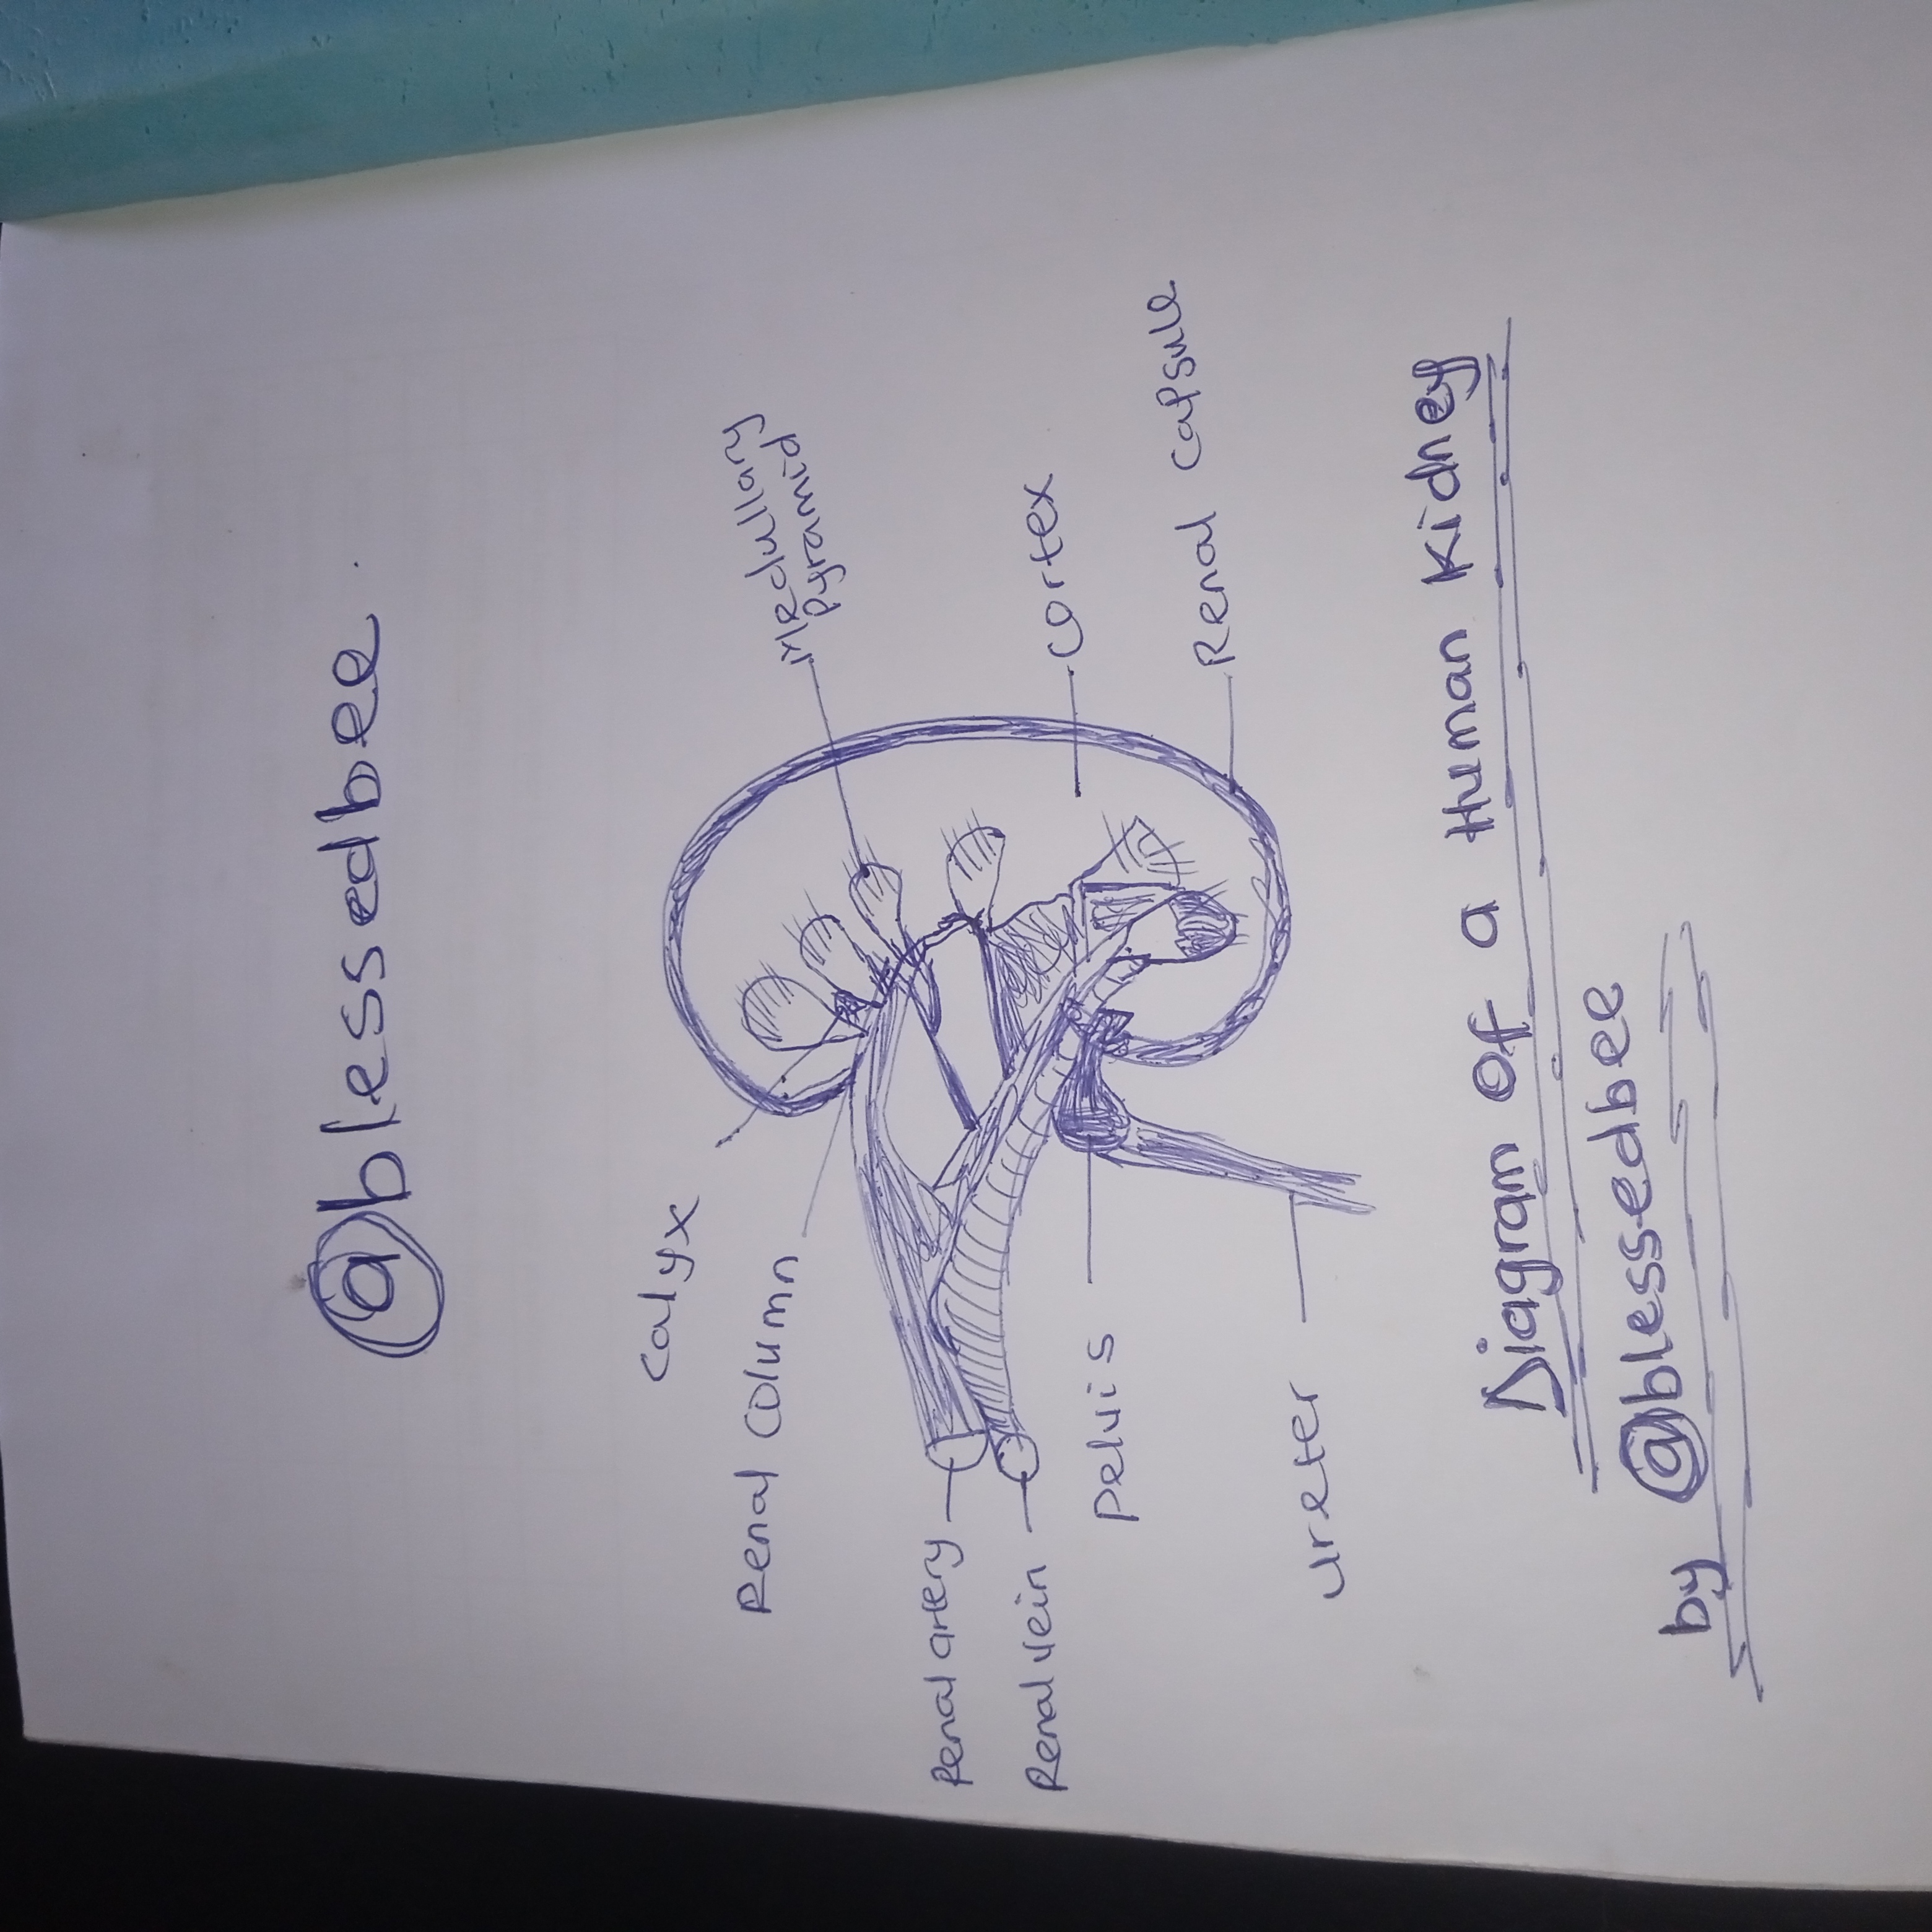 @blessedbee.
Calyx
Renal Column
Medullary
pyramid
Renal artery
Renal vein
Cortex
Pelvis
Renal capsule
Ureter
Diagram of a Human Kidney
by @blessedbee